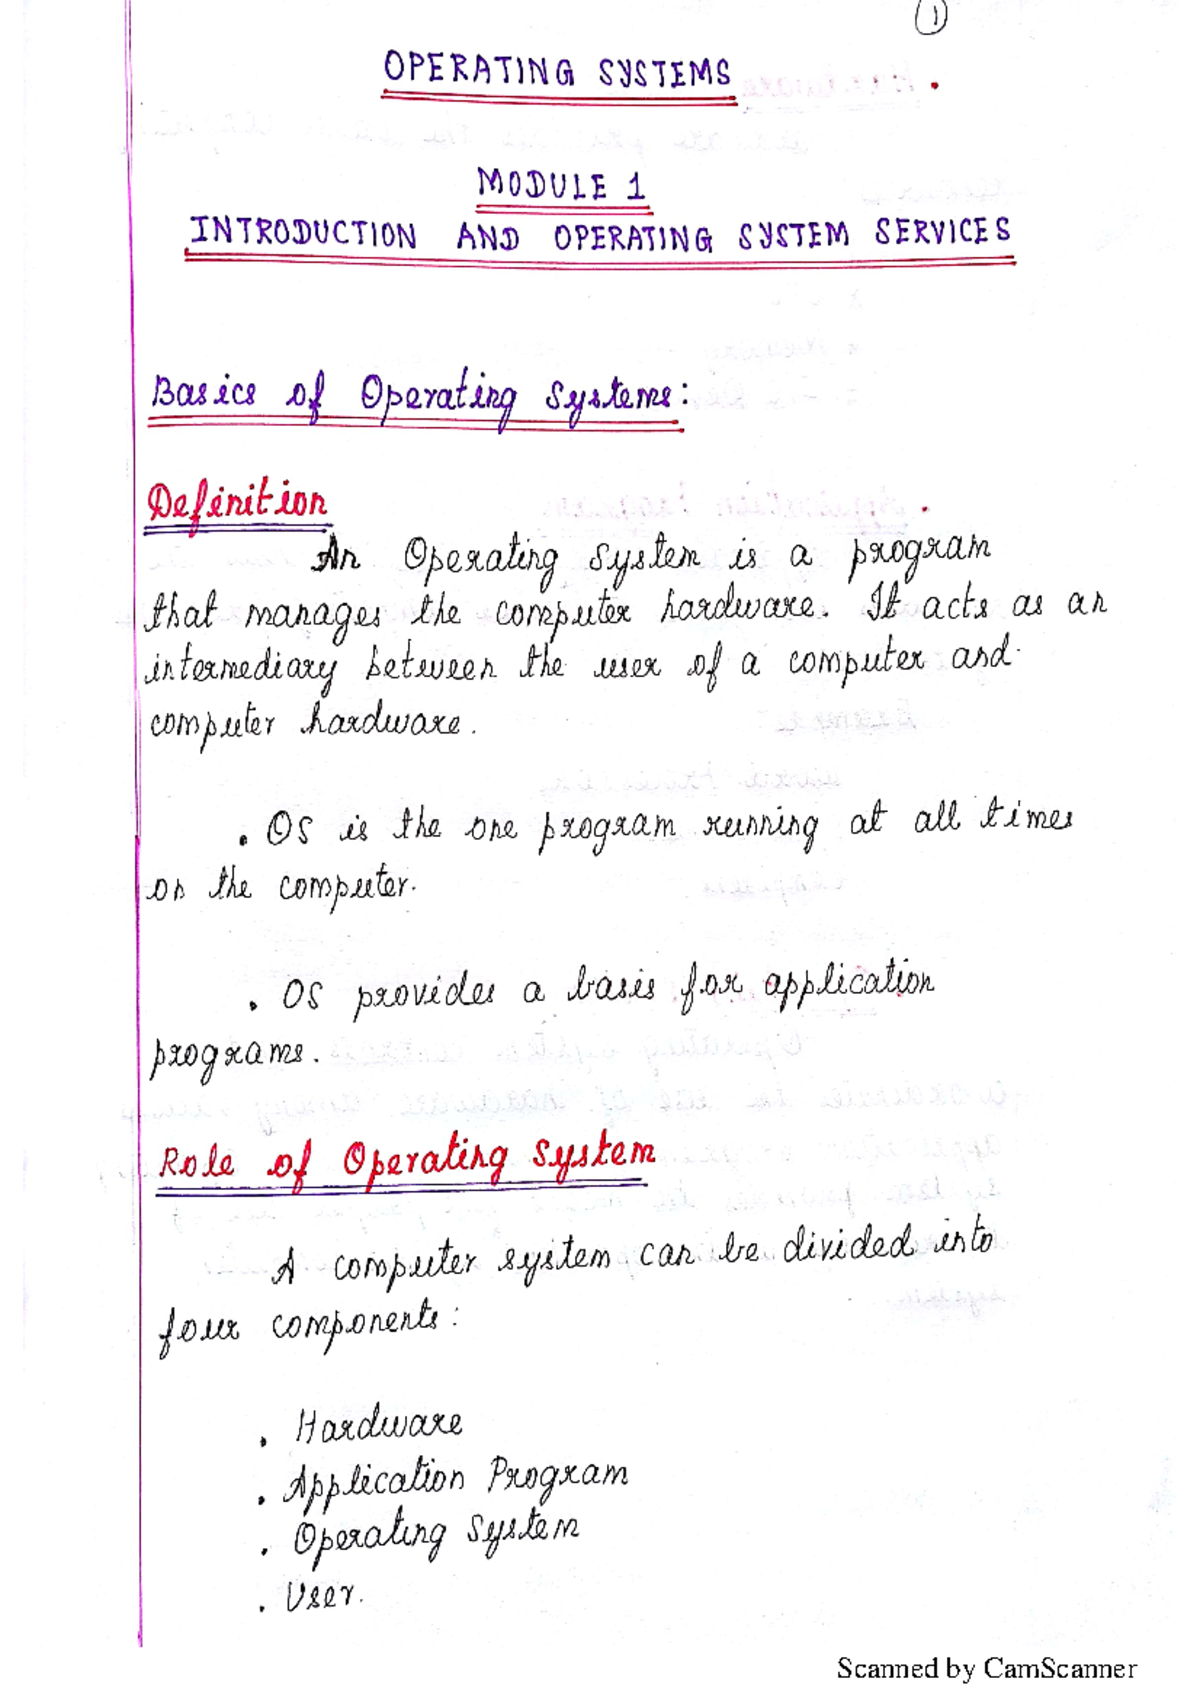 1
OPERATING SYSTEMS
MODULE 1
INTRODUCTION AND OPERATING SYSTEM SERVICES
Basics of Operating Systems:
Definition
An Operating System is a program
that manages the computer hardware. It acts as an
intermediary between the user of a computer and
computer hardware.
. OS is the one program running at all times
on the computer.
. OS provides a basis for application
programs.
Role of Operating System
A computer system can be divided into
four components:
. Hardware
. Application Program
. Operating System
. User.
Scanned by CamScanner